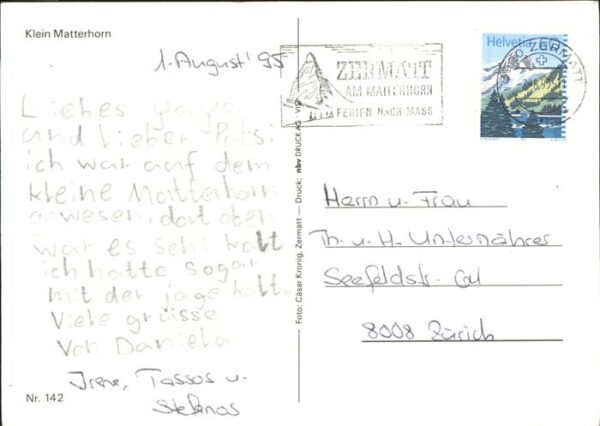 Klein Matterhorn
1. August '95
Liebes yaya
und lieber
ich war auf dem
kleine Matterhorn
gewesen, dort oben
war es sehr kalt
ich hatte sogar
mit der jage kalt.
Viele grüsse
Von Daniela
Irene, Tassos u.
Stefanos
Nr. 142
Foto: Cäsar Kronig, Zermatt — Druck: nbv DRUCK AG
ZERMATT
AM MATTERHORN
FERIEN NACH MASS
Helvetia 60
ZERMATT
Herrn u. Frau
Th. u. H. Unternährer
Seefeldstr.
8008 Zürich